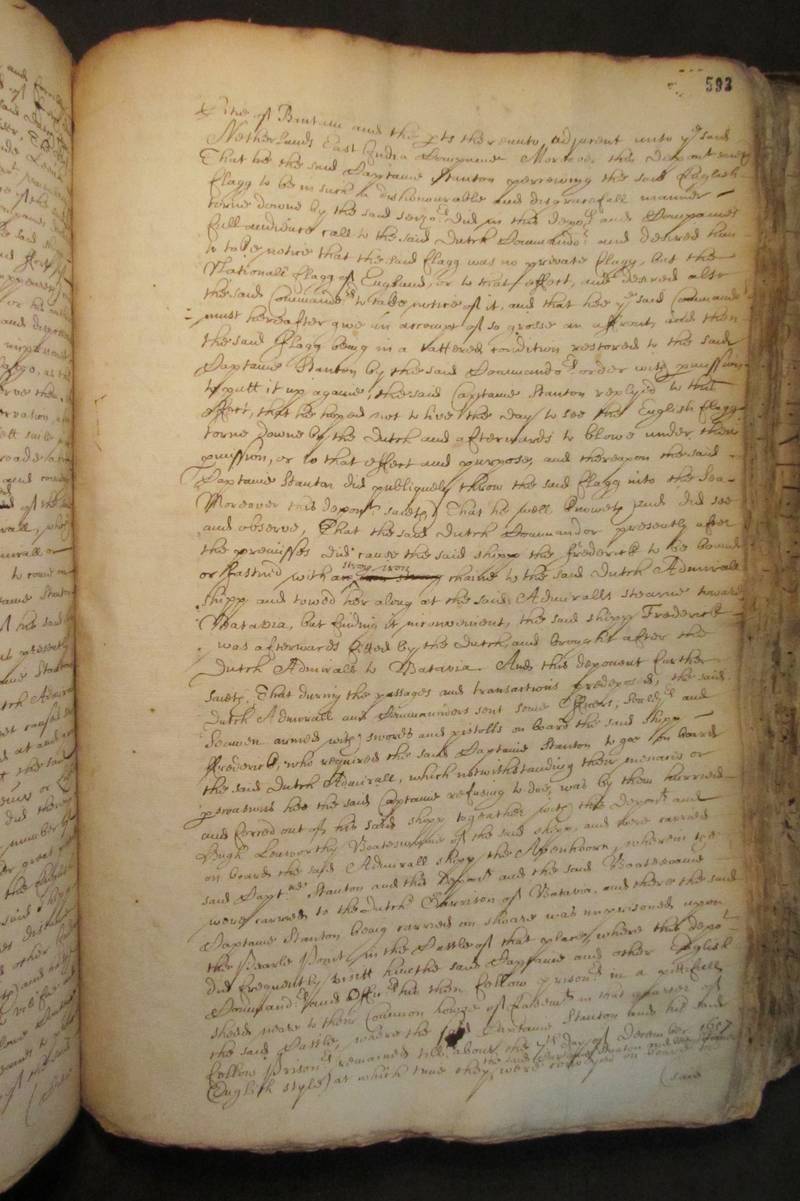 593
Cite of Bantam and the pts thereunto adjacent unto ye said
Netherlands East India Compannie Moreover this Deponent saieth
That he the said Captaine Stanton perceiving the said English
fflagg to be in such a dishonourable and disgracefull manner
torne downe by the said did in this Depots and Companies
full audience call to the said Dutch Commando: and desired him
to take notice that the said fflagg was no private fflagg, but the
Nationall fflagg of England, or to that effect, and desired also
the said Commander to take notice of it, and that hee ye said Commander
must hereafter give an accompt of so grosse an affront, and then
the said fflagg being in a tattered condition restored to the said
Captaine Stanton by the said Commando: order with pmission
to putt it up againe, the said Captaine Stanton replyed to that
effect, that he hoped not to live the day to see the English fflagg
torne downe by the Dutch and afterwards to blowe under their
pmission, or to that effect and purpose, and thereupon the said
Captaine Stanton did publiquely throw the said fflagg into the Sea
Moreover this depont saieth That he well knoweth and did see
and observe, That the said Dutch Commandor presently after
the premisses did cause the said shipp the ffrederick to be bound
or ffastned with a strong iron chaine to the said Dutch Admirall
shipp and towed her along at the said Admiralls stearne towards
Batavia, but finding it inconvenient, the said shipp Frederick
was afterwards by the Dutch, and brought after the
Dutch Admirall to Batavia And this deponent further
saieth, That during the passages and transactions predeposed, the said
Dutch Admirall and Commaunders sent some Officers, and
Seamen armed with swords and pistolls on board the said shipp
ffrederick, who required the said Captaine Stanton to goe on board
the said Dutch Admirall, which notwithstanding their menaces or
pswasions hee the said Captaine refusing to doe, was by them hurried
and forced out of his said shipp together with this Depont and
Hugh Boatswaine of the said shipp, and were carried
on board the said Admirall shipp the Apenhoorn, wherein the
said Captne Stanton and this Depont and the said Boateswaine
were carried to the Dutch Garrison of Batavia, and there the said
Captaine Stanton being carried on shoare was imprisoned upon
the Pearle Point in the Castle of that place, where this depot
did frequently visitt him the said Captaine and other English
Command:rs and Offic:rs his then fellow prison:rs in a pittifull
shedd neare to their Common house of in that quarter of
the said Castle, where the said Captaine Stanton and his said
fellow prison:rs remained till about the 7th day of December 1657
(English style) at which time they the said Captaine Stanton and his were conveyed on board the
(said